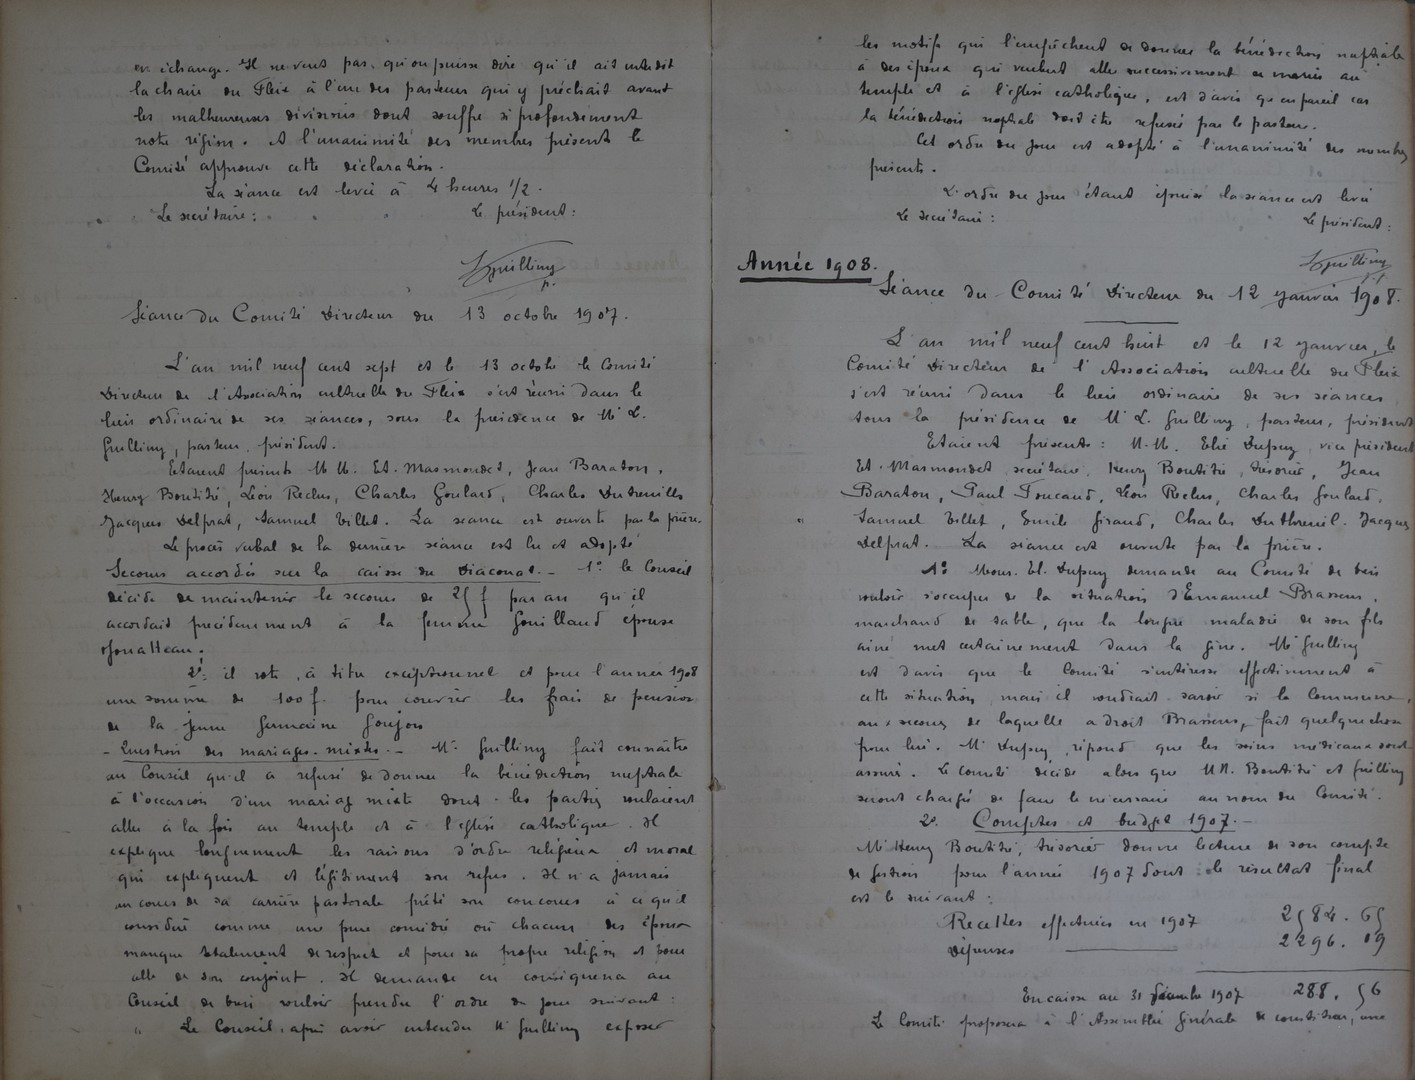 en échange. Il ne veut pas, qu'on puisse dire qu'il ait interdit
la chaire du Fleix à l'un des pasteurs qui y prêchait avant
les malheureuses divisions dont souffre si profondément
notre région. A l'unanimité des membres présents le
Comité approuve cette déclaration.
La séance est levée à 4 heures 1/2.
Le secrétaire : Le président :
Guilliny
Séance du Comité Directeur du 13 octobre 1907.
L'an mil neuf cent sept et le 13 octobre le Comité
Directeur de l'Association cultuelle du Fleix s'est réuni dans le
lieu ordinaire de ses séances, sous la présidence de Mr L.
Guilliny, pasteur, président.
Etaient présents M M. Et. Masmondet, Jean Baraton,
Henry Boutitié, Léon Reclus, Charles Goulard, Charles Dutreuilh
Jacques Delprat, Samuel Tillet. La séance est ouverte par la prière.
Le procès verbal de la dernière séance est lu et adopté
Secours accordés sur la caisse du Diaconat. - 1° le Conseil
décide de maintenir le secours de 25 f par an qu'il
accordait précédemment à la femme Gouillaud épouse
2° il vote, à titre exceptionnel et pour l'année 1908
une somme de 100 f. pour couvrir les frais de pension
de la jeune Germaine Goujon
- Question des mariages mixtes. - Mr. Guilliny fait connaître
au Conseil qu'il a refusé de donner la bénédiction nuptiale
à l'occasion d'un mariage mixte dont les parties voulaient
aller à la fois au temple et à l'église catholique. Il
explique longuement les raisons d'ordre religieux et moral
qui expliquent et légitiment son refus. Il n'a jamais
au cours de sa carrière pastorale prêté son concours à ce qu'il
considère comme une pure comédie où chacun des époux
manque totalement de respect et pour sa propre religion et pour
celle de son conjoint. Il demande en conséquence au
Conseil de bien vouloir prendre l'ordre du jour suivant :
" Le Conseil, après avoir entendu Mr Guilliny exposer
les motifs qui l'empêchent de donner la bénédiction nuptiale
à des époux qui veulent aller successivement se marier au
temple et à l'église catholique, est d'avis qu'en pareil cas
la bénédiction nuptiale doit être refusée par le pasteur.
Cet ordre du jour est adopté à l'unanimité des membres
présents.
L'ordre du jour étant épuisé la séance est levée
Le secrétaire : Le président :
Guilliny
Année 1908.
Séance du Comité Directeur du 12 janvier 1908.
L'an mil neuf cent huit et le 12 janvier, le
Comité Directeur de l'Association cultuelle du Fleix
s'est réuni dans le lieu ordinaire de ses séances
sous la présidence de Mr L. Guilliny, pasteur, président
Etaient présents : M.M. Elie Dupuy, vice président
Et. Masmondet secrétaire, Henry Boutitié, trésorier, Jean
Baraton, Paul Foucaud, Léon Reclus, Charles Goulard,
Samuel Tillet, Emile Giraud, Charles Duthreuil. Jacques
Delprat. La séance est ouverte par la prière.
1° Mons. El. Dupuy demande au Comité de bien
vouloir s'occuper de la situation d'Emmanuel Brassem,
marchand de sable, que la longue maladie de son fils
ainé met certainement dans la gêne. Mr Guilliny
est d'avis que le Comité s'intéresse effectivement à
cette situation, mais il voudrait savoir si la Commune,
aux secours de laquelle a droit Brassem, fait quelque chose
pour lui. Mr Dupuy répond que les soins médicaux sont
assurés. Le comité décide alors que MM. Boutitié et Guilliny
seront chargés de faire le nécessaire au nom du Comité.
2°. Comptes et budget 1907. -
Mr Henry Boutitié, trésorier donne lecture de son compte
de gestion pour l'année 1907 dont le résultat final
est le suivant :
Recettes effectuées en 1907 2584.65
Dépenses 2296.09
En caisse au 31 décembre 1907 288.56
Le Comité proposera à l'Assemblée Générale de constituer, une